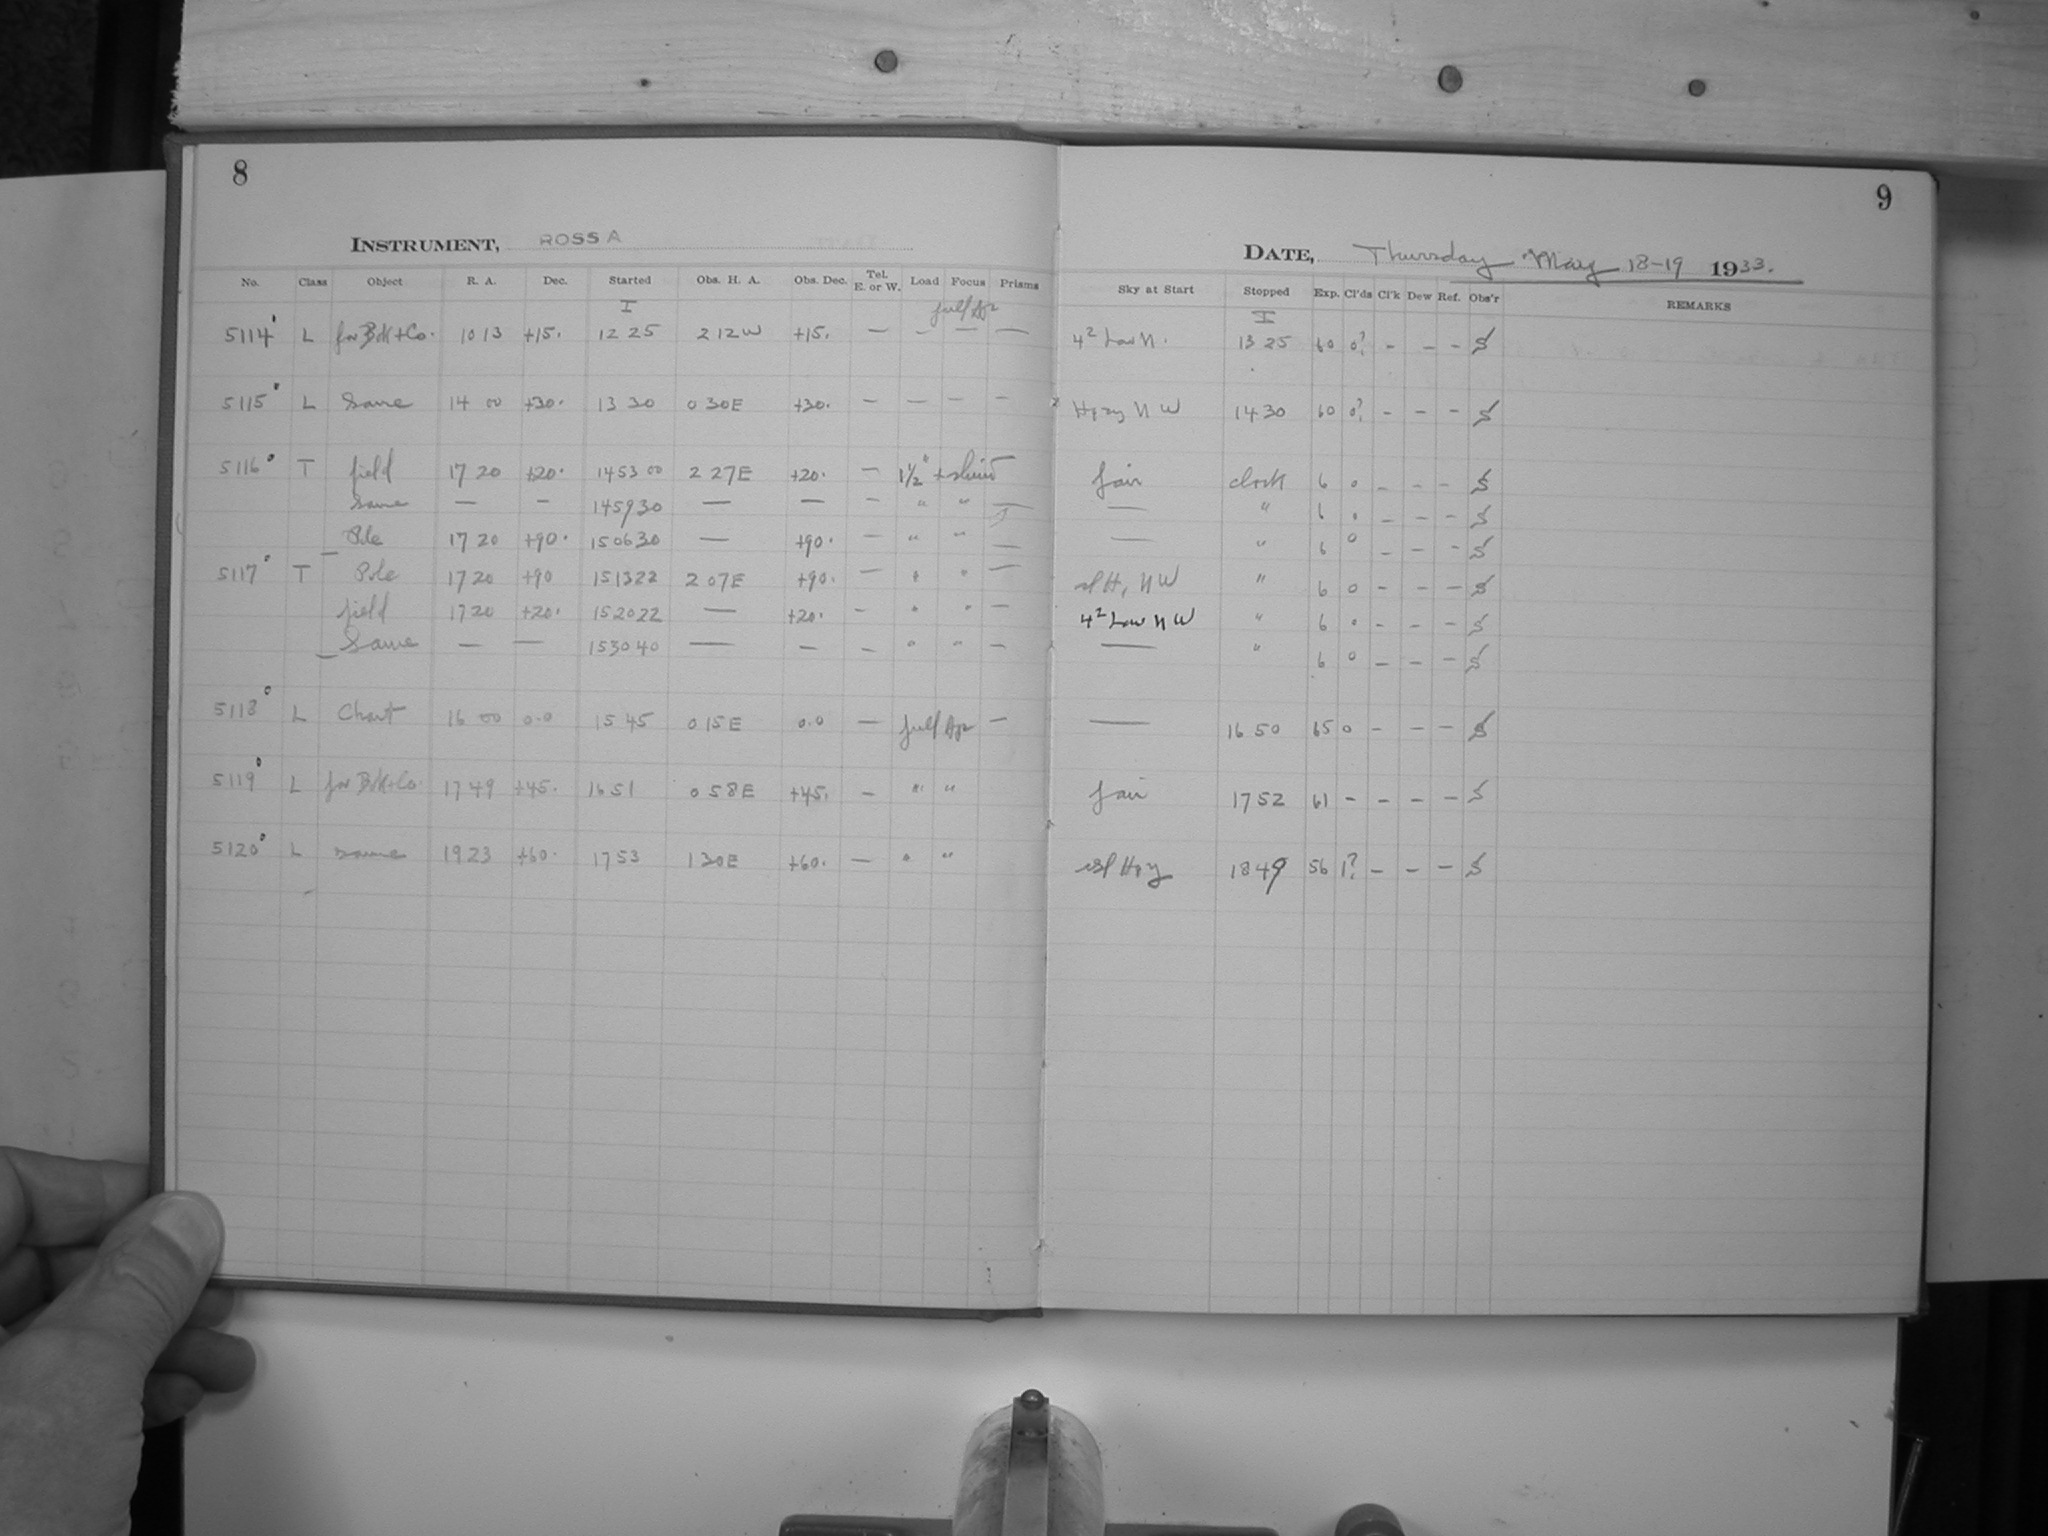 8
INSTRUMENT, ROSS A
No. Class Object R. A. Dec. Started Obs. H. A. Obs. Dec. Tel. E. or W. Load Focus Prisms
I full Ap
5114 L for BOK+Co. 10 13 +15. 12 25 2 12 W +15. — — — —
5115 L Same 14 00 +30. 13 30 0 30E +30. — — — —
5116 T field 17 20 +20. 14 53 00 2 27E +20. — 1½"
Same — — 14 59 30 — — — " " —
Pole 17 20 +90. 15 06 30 — +90. — " " —
5117 T Pole 17 20 +90 15 13 22 2 07E +90. — " " —
field 17 20 +20. 15 20 22 — +20. — " " —
Same — — 15 30 40 — — — " " —
5118 L Chart 16 00 0.0 15 45 0 15E 0.0 — full Ap —
5119 L for BOK+Co. 17 49 +45. 16 51 0 58E +45. — " "
5120 L same 19 23 +60. 17 53 1 30E +60. — " "
9
DATE, Thursday May 18-19 1933.
Sky at Start Stopped Exp. Cl'ds Cl'k Dew Ref. Obs'r REMARKS
I
4² Low N. 13 25 60 0? — — — S
Hazy N W 14 30 60 0? — — — S
fair clock 6 0 — — — S
— " 6 0 — — — S
— " 6 0 — — — S
N W " 6 0 — — — S
4² Low N W " 6 0 — — — S
— " 6 0 — — — S
— 16 50 65 0 — — — S
fair 17 52 61 — — — — S
18 49 56 1? — — — S